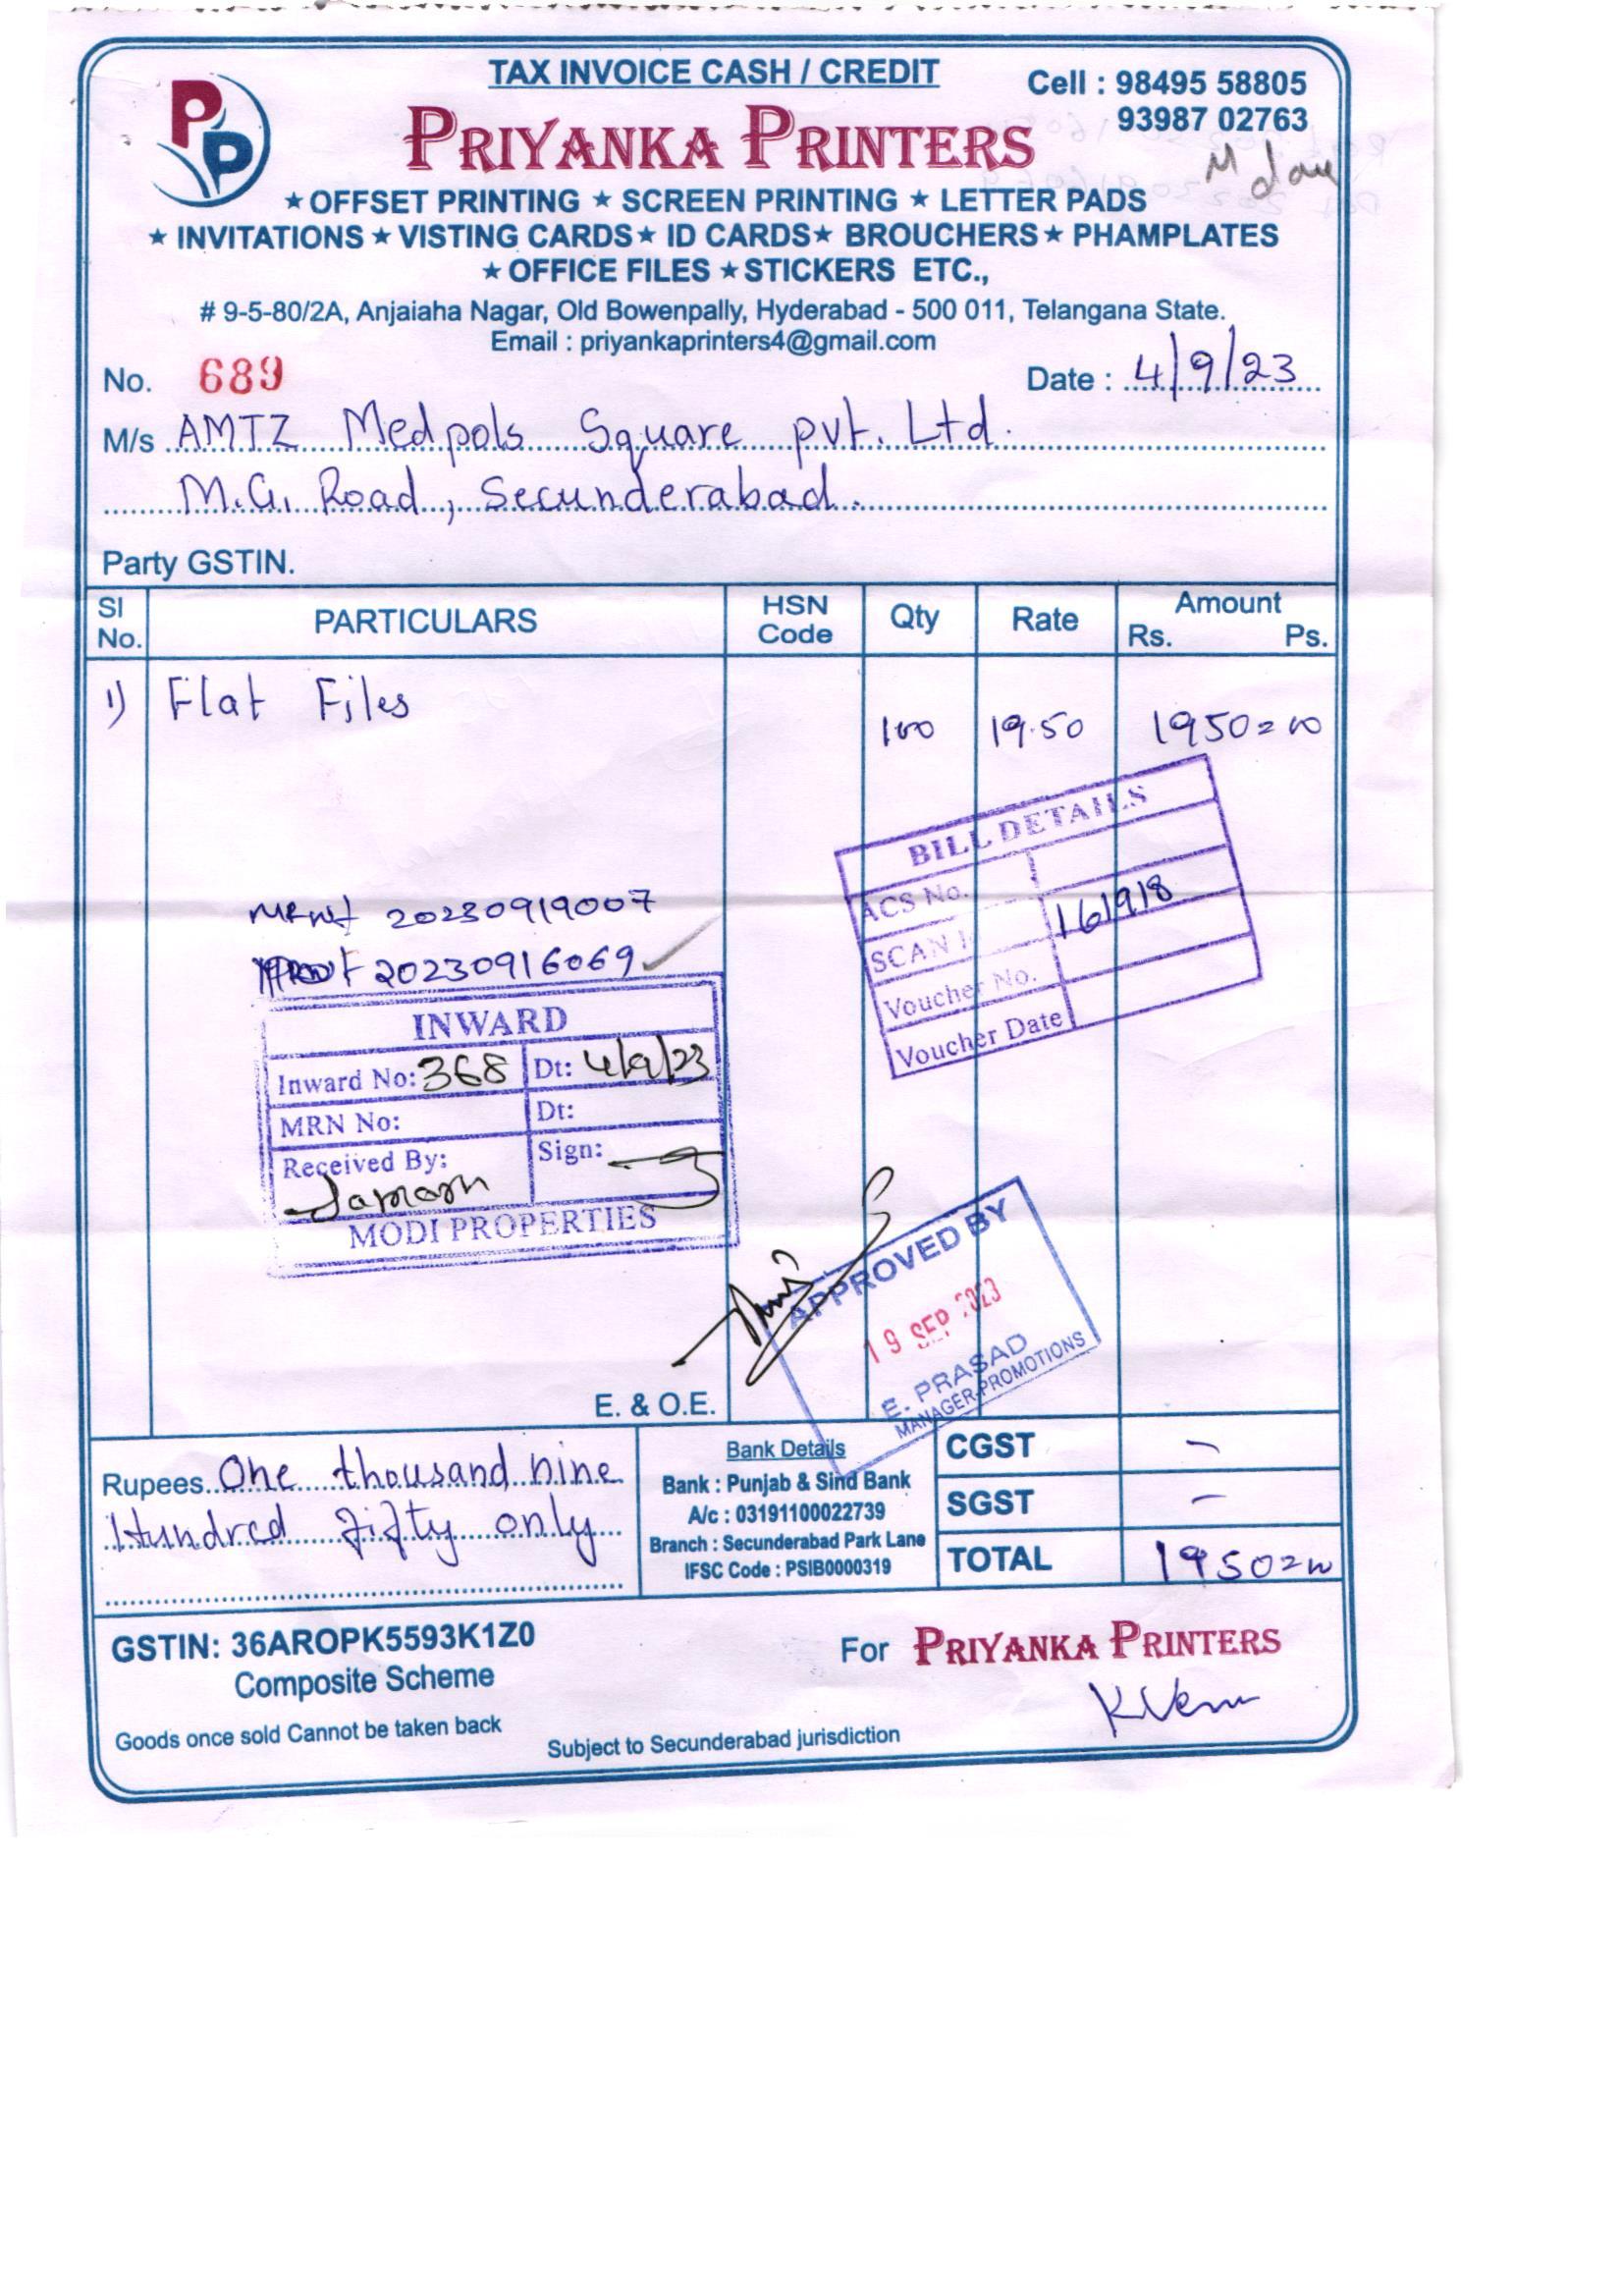 TAX INVOICE CASH / CREDIT
Cell : 98495 58805
93987 02763
PP
PRIYANKA PRINTERS
★ OFFSET PRINTING ★ SCREEN PRINTING ★ LETTER PADS
★ INVITATIONS ★ VISTING CARDS ★ ID CARDS ★ BROUCHERS ★ PHAMPLATES
★ OFFICE FILES ★ STICKERS ETC.,
# 9-5-80/2A, Anjaiaha Nagar, Old Bowenpally, Hyderabad - 500 011, Telangana State.
Email : priyankaprinters4@gmail.com
No. 689 Date : 4/9/23
M/s AMTZ Medpols Square pvt. Ltd.
M.G. Road, Secunderabad.
Party GSTIN.
Sl No. PARTICULARS HSN Code Qty Rate Amount Rs. Ps.
1) Flat Files 100 19.50 1950=00
BILL DETAILS
ACS No.
SCAN 161918
Voucher No.
Voucher Date
20230919007
20230916069
INWARD
Inward No: 368 Dt: 4/9/23
MRN No: Dt:
Received By: Sign:
MODI PROPERTIES
APPROVED BY
19 SEP 2023
E. PRASAD
MANAGER-PROMOTIONS
E. & O.E.
Rupees One thousand nine
Hundred fifty only
Bank Details
Bank : Punjab & Sind Bank
A/c : 03191100022739
Branch : Secunderabad Park Lane
IFSC Code : PSIB0000319
CGST –
SGST –
TOTAL 1950=00
GSTIN: 36AROPK5593K1Z0
Composite Scheme
For PRIYANKA PRINTERS
Goods once sold Cannot be taken back
Subject to Secunderabad jurisdiction